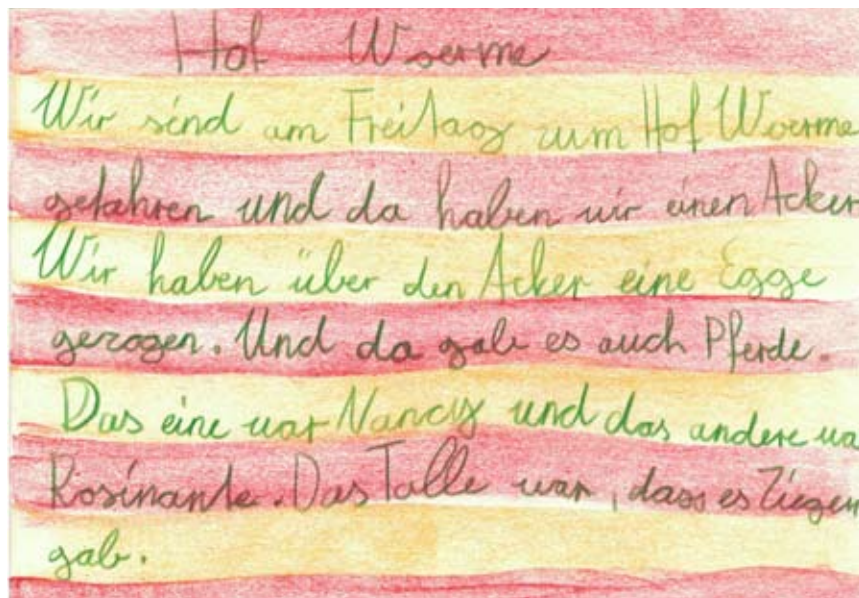 Hof Woerme
Wir sind am Freitag zum Hof Woerme
gefahren und da haben wir einen Acker
Wir haben über den Acker eine Egge
gezogen. Und da gab es auch Pferde.
Das eine war Nancy und das andere wa
Rosinante. Das Tolle war, dass es Ziegen
gab.